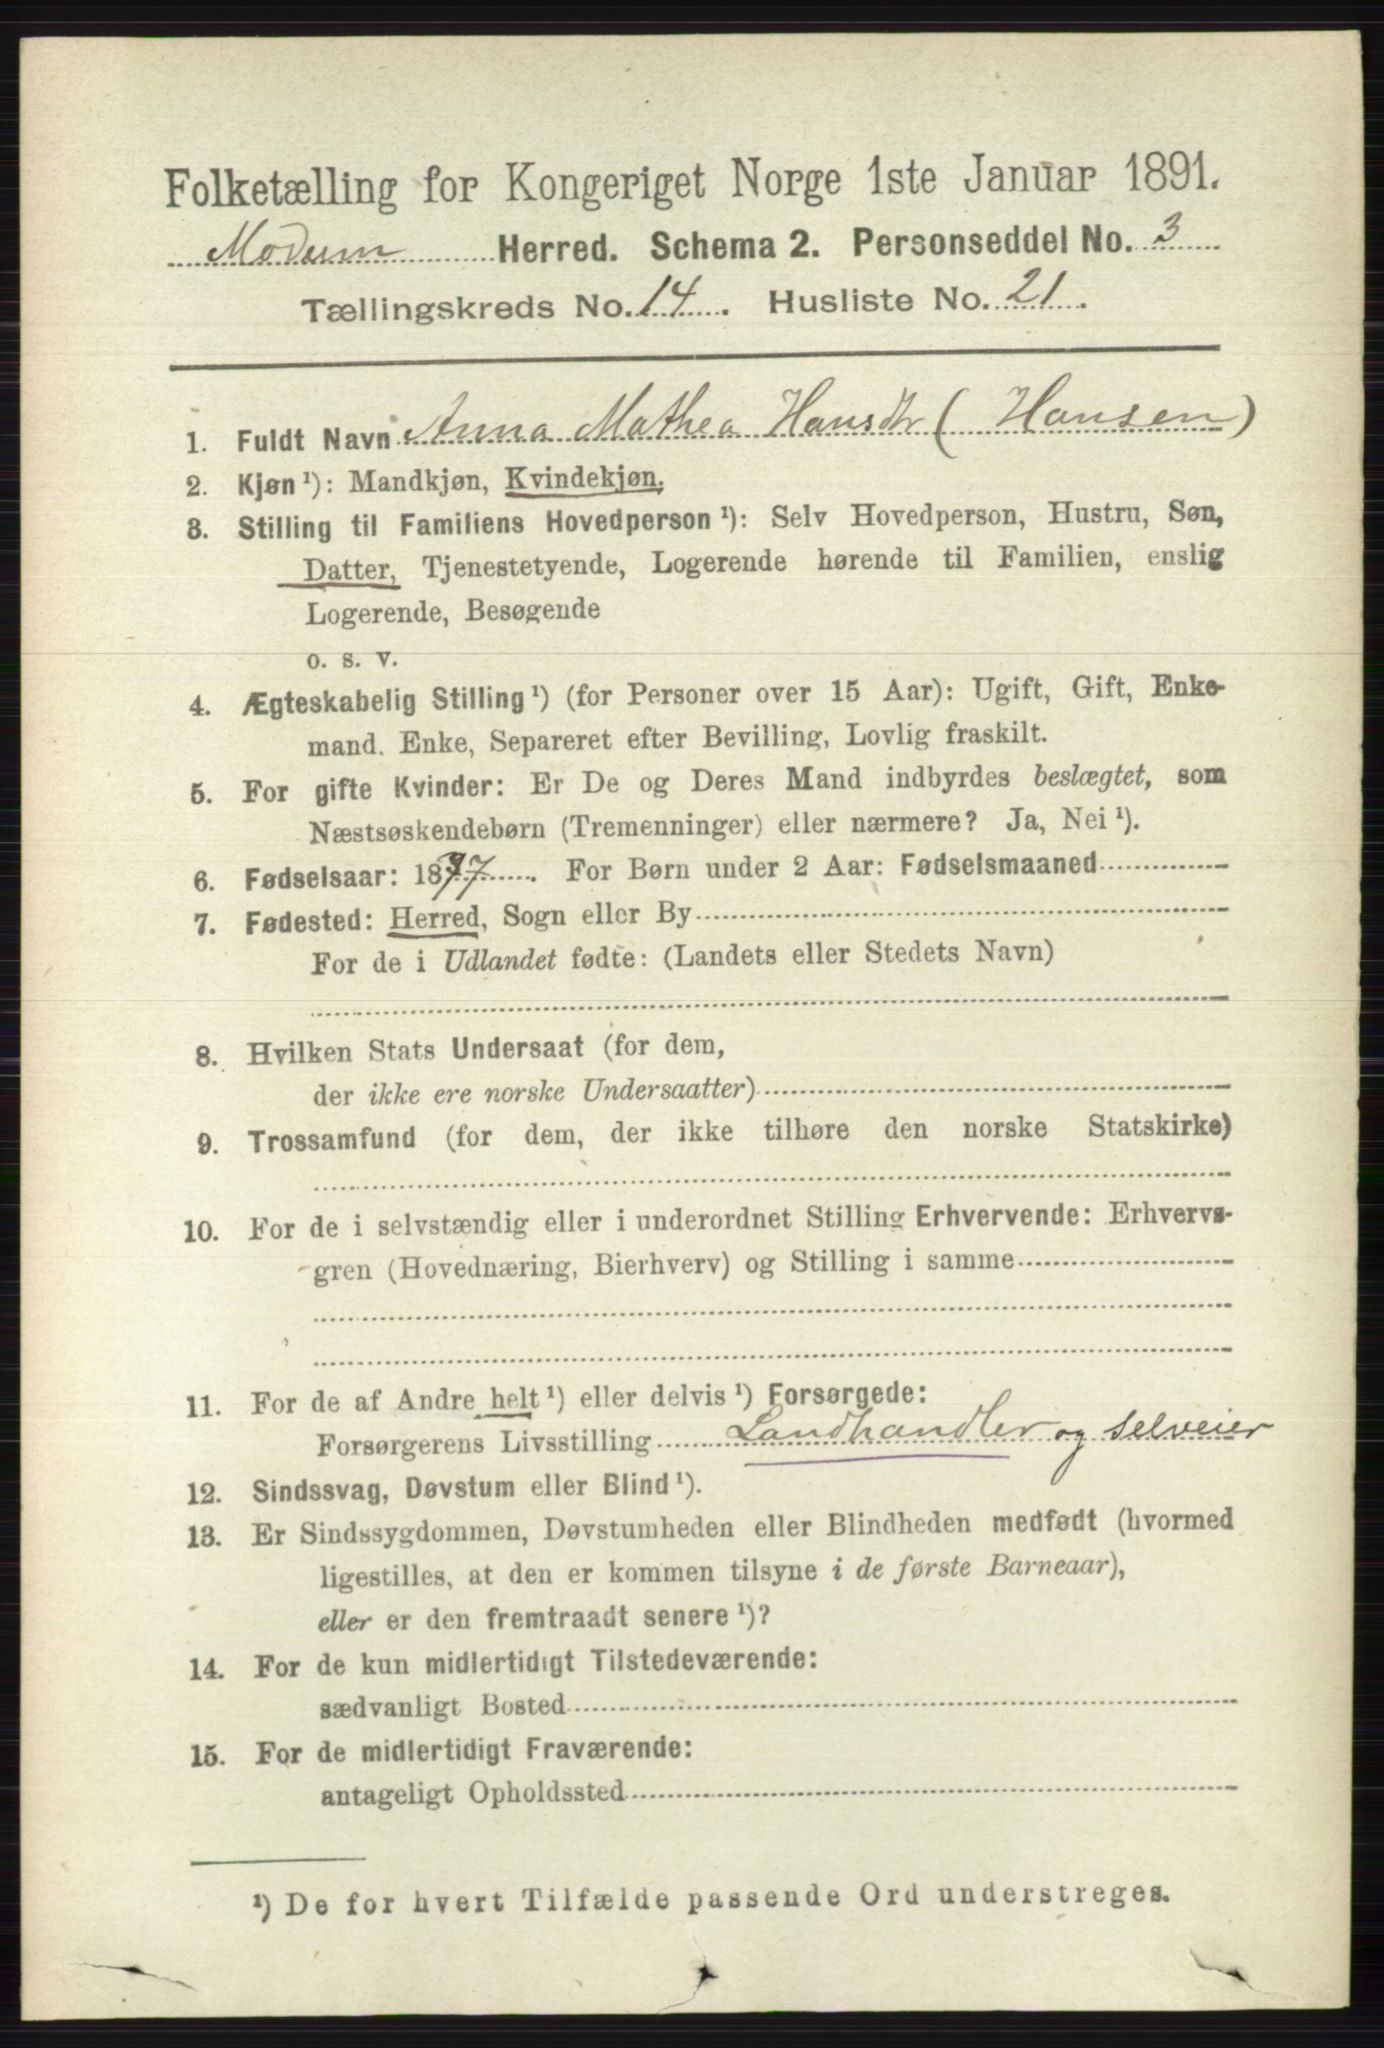 Folketælling for Kongeriget Norge 1ste Januar 1891.
Modum Herred. Schema 2. Personseddel No. 3
Tællingskreds No. 14. Husliste No. 21.
1. Fuldt Navn Anna Mathea Hansdtr (Hansen)
2. Kjøn ¹): Mandkjøn, Kvindekjøn.
3. Stilling til Familiens Hovedperson ¹): Selv Hovedperson, Hustru, Søn,
Datter, Tjenestetyende, Logerende hørende til Familien, enslig
Logerende, Besøgende
o. s. v.
4. Ægteskabelig Stilling ¹) (for Personer over 15 Aar): Ugift, Gift, Enke-
mand. Enke, Separeret efter Bevilling, Lovlig fraskilt.
5. For gifte Kvinder: Er De og Deres Mand indbyrdes beslægtet, som
Næstsøskendebørn (Tremenninger) eller nærmere? Ja, Nei ¹).
6. Fødselsaar: 1877. For Børn under 2 Aar: Fødselsmaaned
7. Fødested: Herred, Sogn eller By
For de i Udlandet fødte: (Landets eller Stedets Navn)
8. Hvilken Stats Undersaat (for dem,
der ikke ere norske Undersaatter)
9. Trossamfund (for dem, der ikke tilhøre den norske Statskirke)
10. For de i selvstændig eller i underordnet Stilling Erhvervende: Erhvervs-
gren (Hovednæring, Bierhverv) og Stilling i samme
11. For de af Andre helt ¹) eller delvis ¹) Forsørgede:
Forsørgerens Livsstilling Landhandler og selveier
12. Sindssvag, Døvstum eller Blind ¹).
13. Er Sindssygdommen, Døvstumheden eller Blindheden medfødt (hvormed
ligestilles, at den er kommen tilsyne i de første Barneaar),
eller er den fremtraadt senere ¹)?
14. For de kun midlertidigt Tilstedeværende:
sædvanligt Bosted
15. For de midlertidigt Fraværende:
antageligt Opholdssted
¹) De for hvert Tilfælde passende Ord understreges.